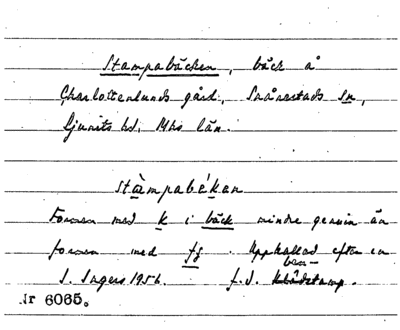 Stampabäcken, bäck å
Charlottenlunds gård, Snårestads sn,
Ljunits hd. Mhs län.
stàmpabékan
Formen med k i bäck mindre genuin än
formen med fj. Uppkallad efter en
ben-
f.d. klädstamp.
I. Ingers 1956.
Nr 6065.